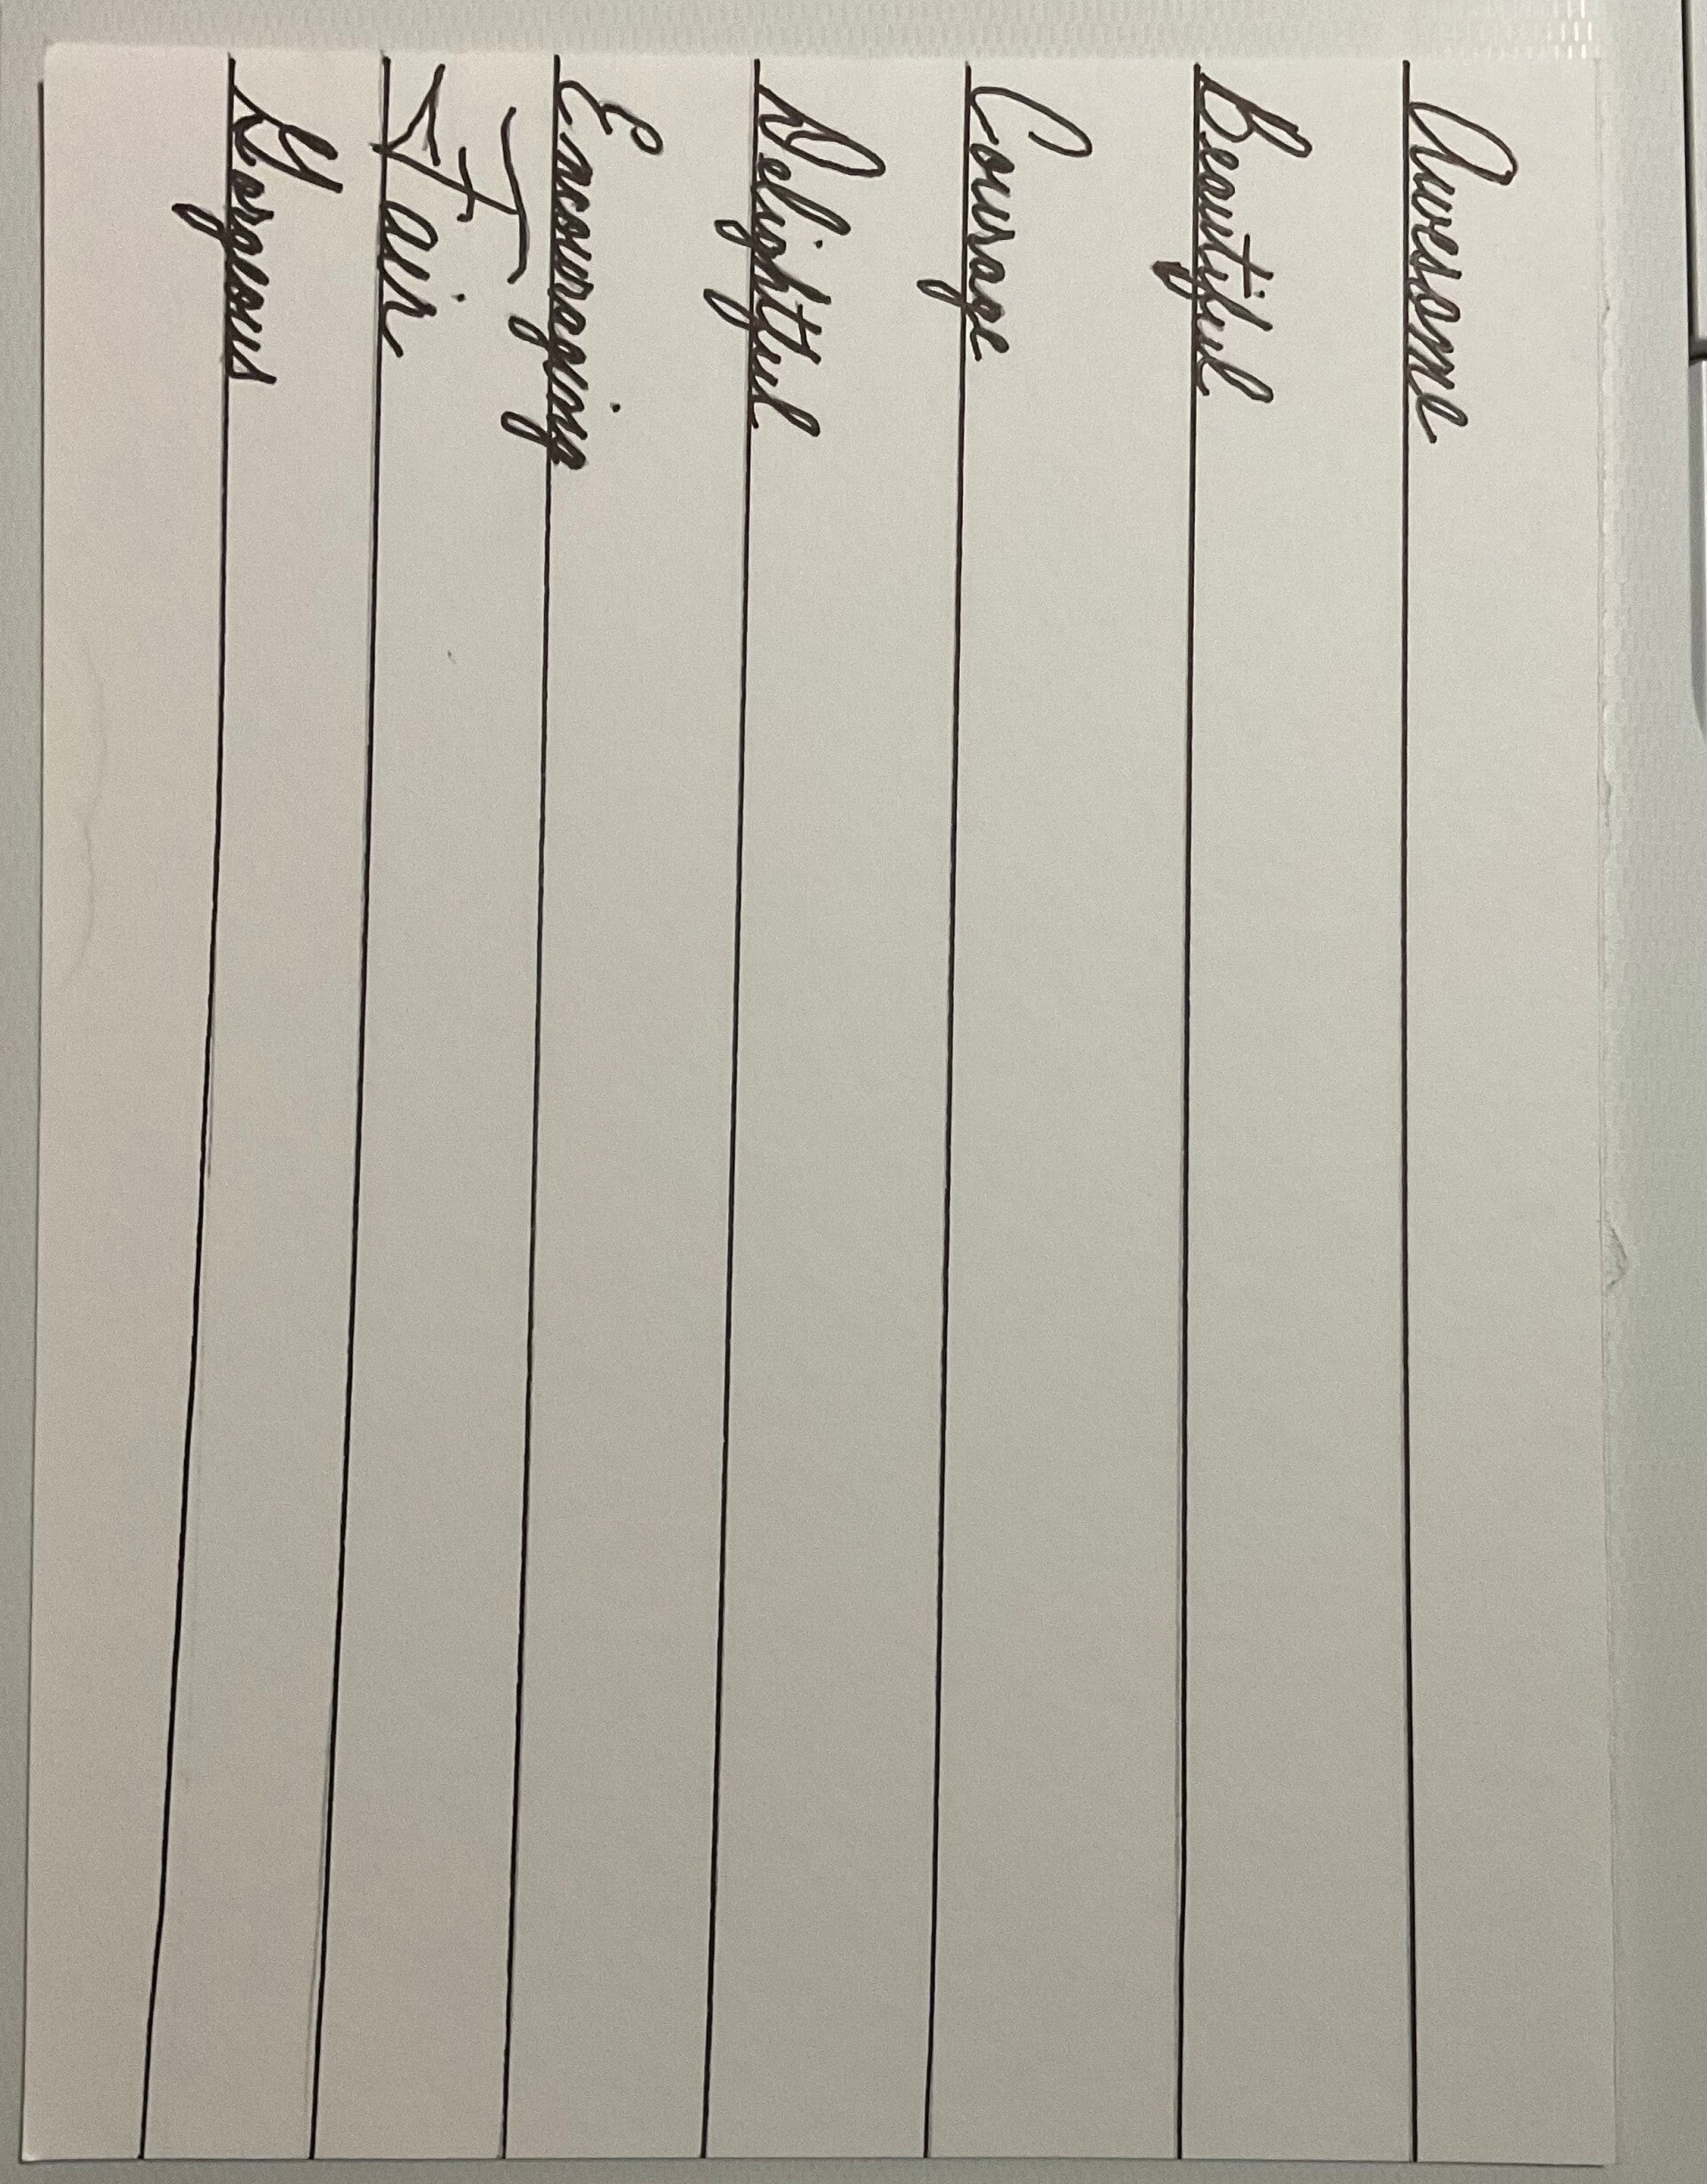 Awesome
Beautiful
Courage
Delightful
Encouraging
Fair
Gorgeous